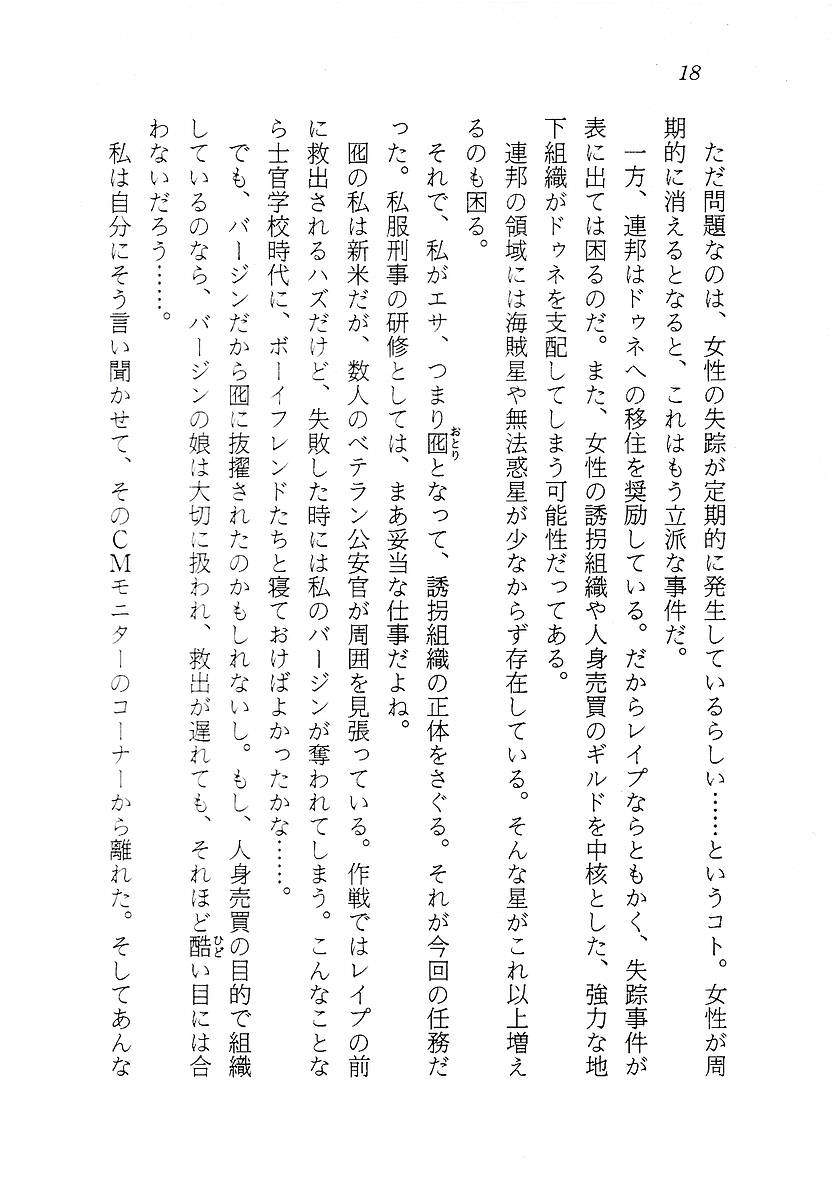 18
ただ問題なのは、女性の失踪が定期的に発生しているらしい……というコト。女性が周
期的に消えるとなると、これはもう立派な事件だ。
一方、連邦はドゥネへの移住を奨励している。だからレイプならともかく、失踪事件が
表に出ては困るのだ。また、女性の誘拐組織や人身売買のギルドを中核とした、強力な地
下組織がドゥネを支配してしまう可能性だってある。
連邦の領域には海賊星や無法惑星が少なからず存在している。そんな星がこれ以上増え
るのも困る。
それで、私がエサ、つまり囮おとりとなって、誘拐組織の正体をさぐる。それが今回の任務だ
った。私服刑事の研修としては、まあ妥当な仕事だよね。
囮の私は新米だが、数人のベテラン公安官が周囲を見張っている。作戦ではレイプの前
に救出されるハズだけど、失敗した時には私のバージンが奪われてしまう。こんなことな
ら士官学校時代に、ボーイフレンドたちと寝ておけばよかったかな……。
でも、バージンだから囮に抜擢されたのかもしれないし。もし、人身売買の目的で組織
しているのなら、バージンの娘は大切に扱われ、救出が遅れても、それほど酷ひどい目には合
わないだろう……。
私は自分にそう言い聞かせて、そのCMモニターのコーナーから離れた。そしてあんな